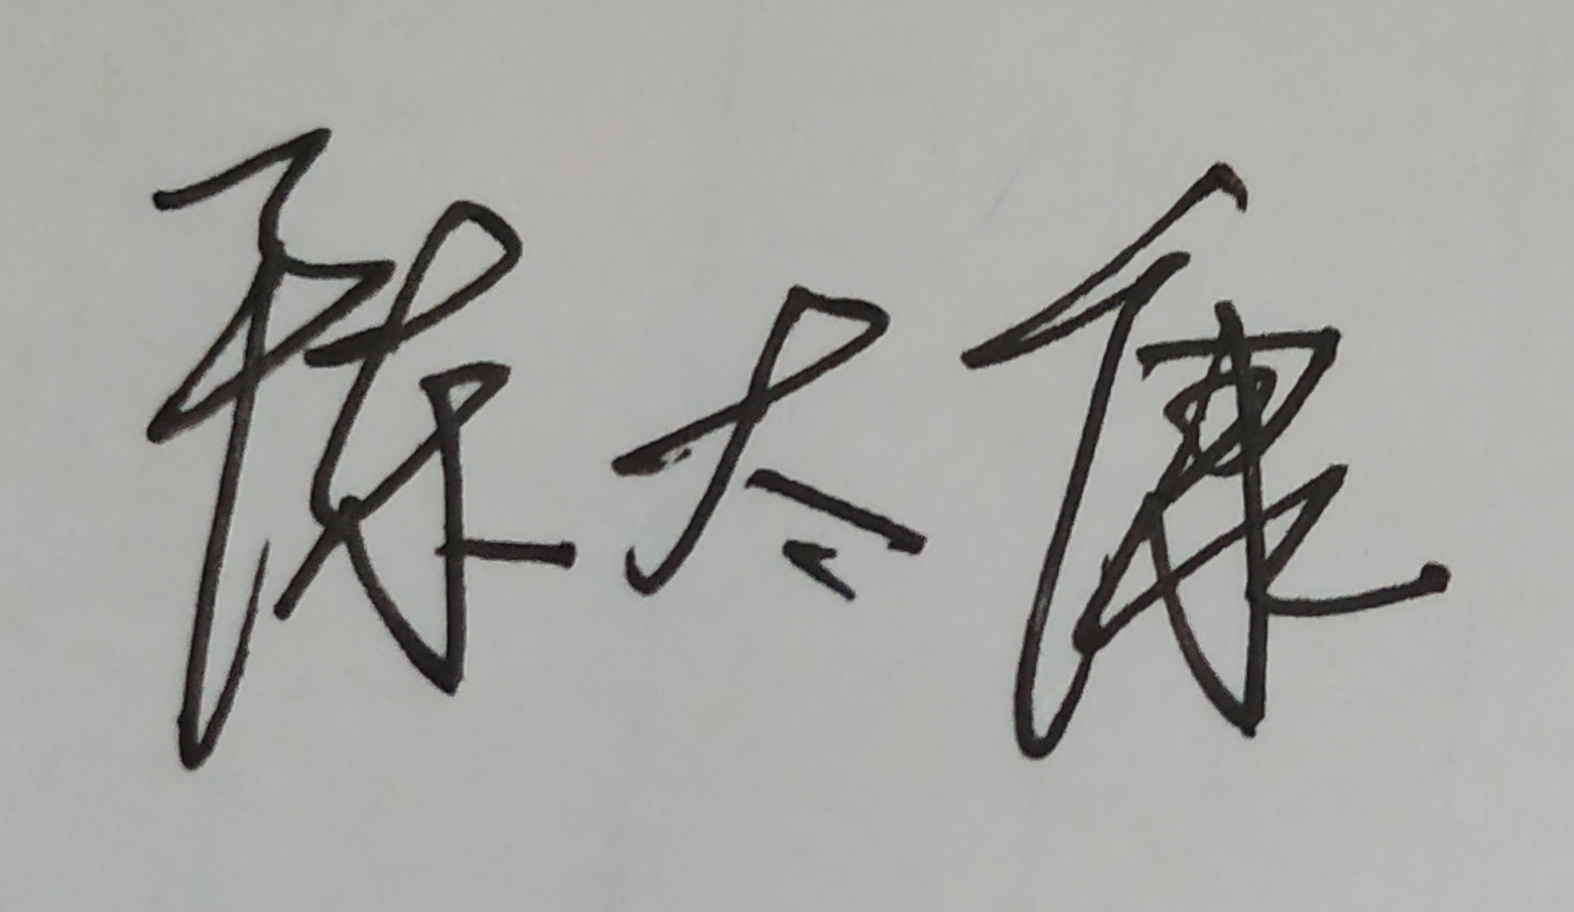 陈太康